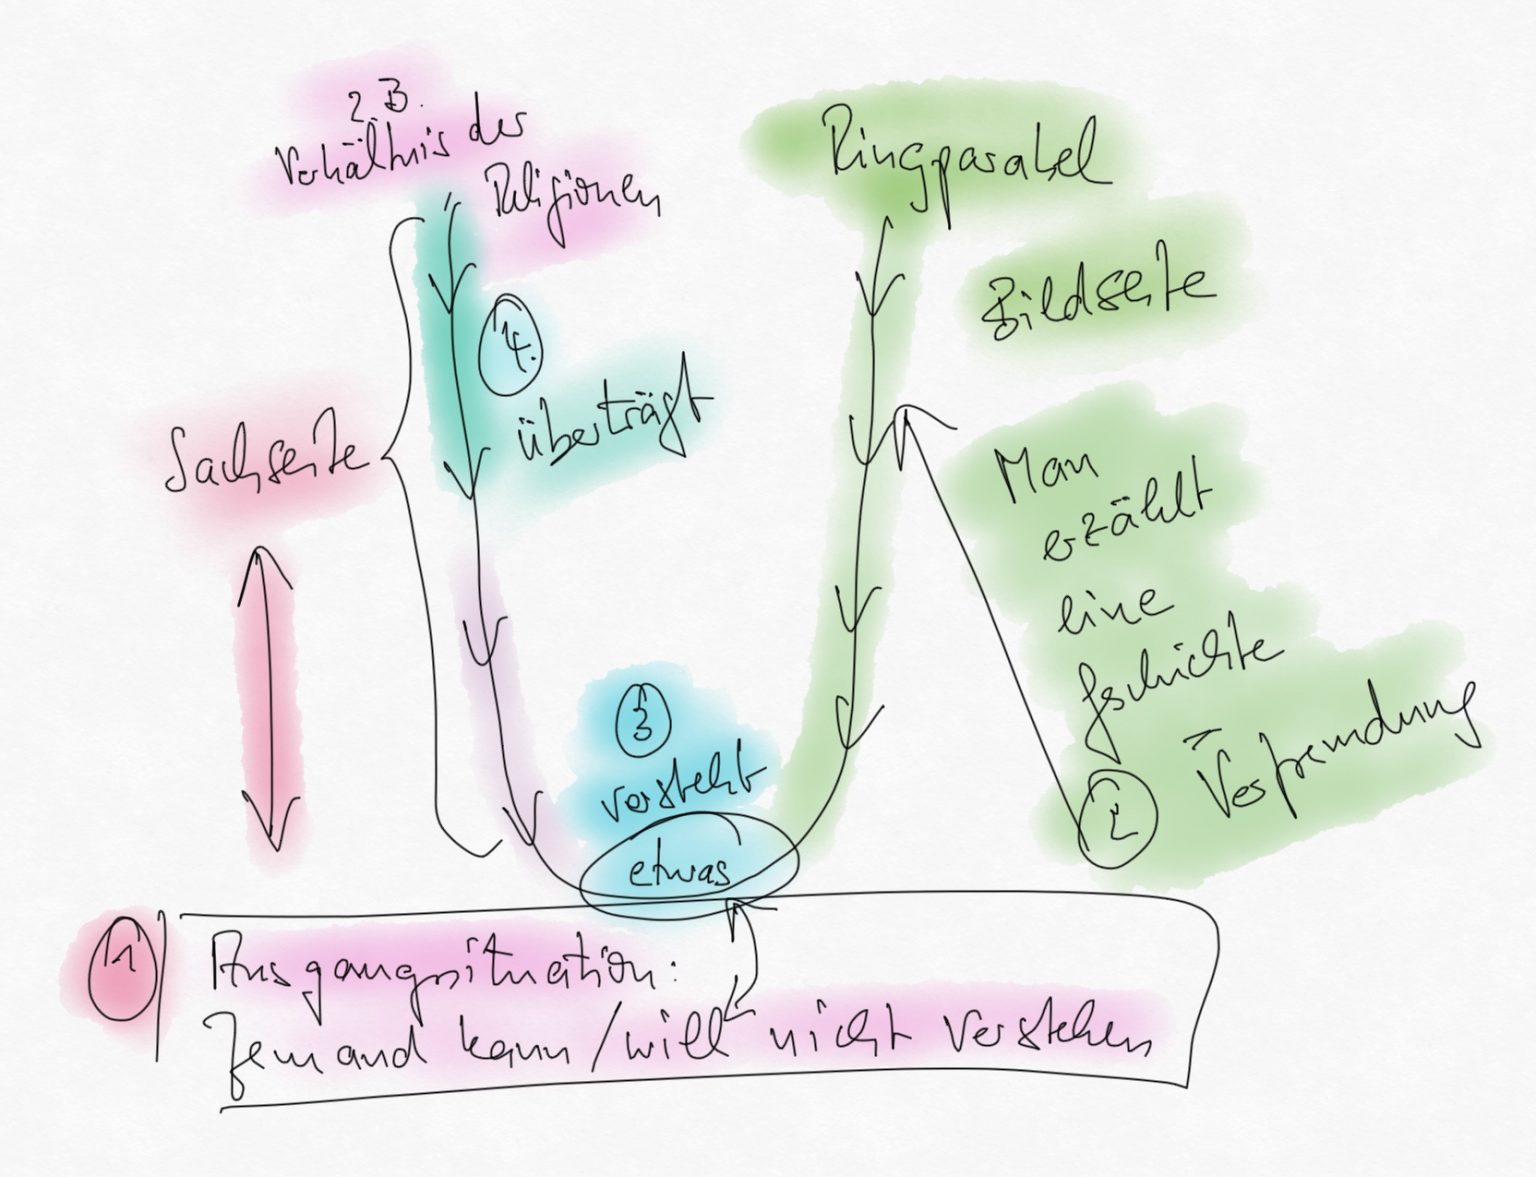 z.B.
Verhältnis der
Religionen
Ringparabel
Bildseite
4.
überträgt
Sachseite
Man
erzählt
eine
Geschichte
=
Verfremdung
2
3
versteht
etwas
1
Ausgangssituation:
Jemand kann/will nicht verstehen